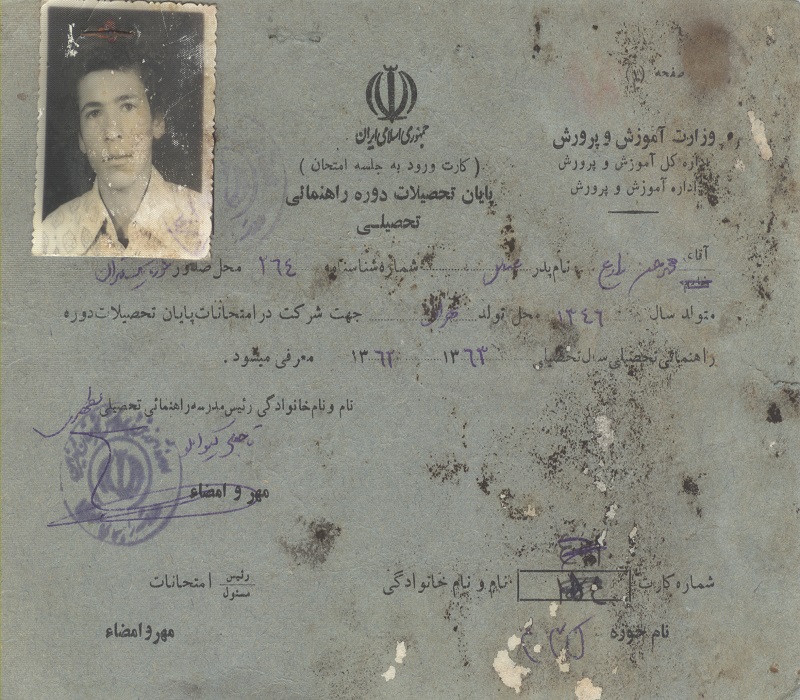 صفحه
جمهوری اسلامی ایران
وزارت آموزش و پرورش
اداره کل آموزش و پرورش
اداره آموزش و پرورش
( کارت ورود به جلسه امتحان )
پایان تحصیلات دوره راهنمائی
تحصیلـی
آقای نام پدر شماره شناسنامه ٢٦٤ محل صدور
متولد سال ١٣٤٦ محل تولد تهران جهت شرکت در امتحانات پایان تحصیلات دوره
راهنمائی تحصیلی سال تحصیلی ١٣٦٣ ١٣٦٢ معرفی میشود .
نام و نام خانوادگی رئیس مدرسه راهنمائی تحصیلی
مهر و امضاء
شماره کارت نام و نام خانوادگی رئیس مسئول امتحانات
نام حوزه مهر و امضاء